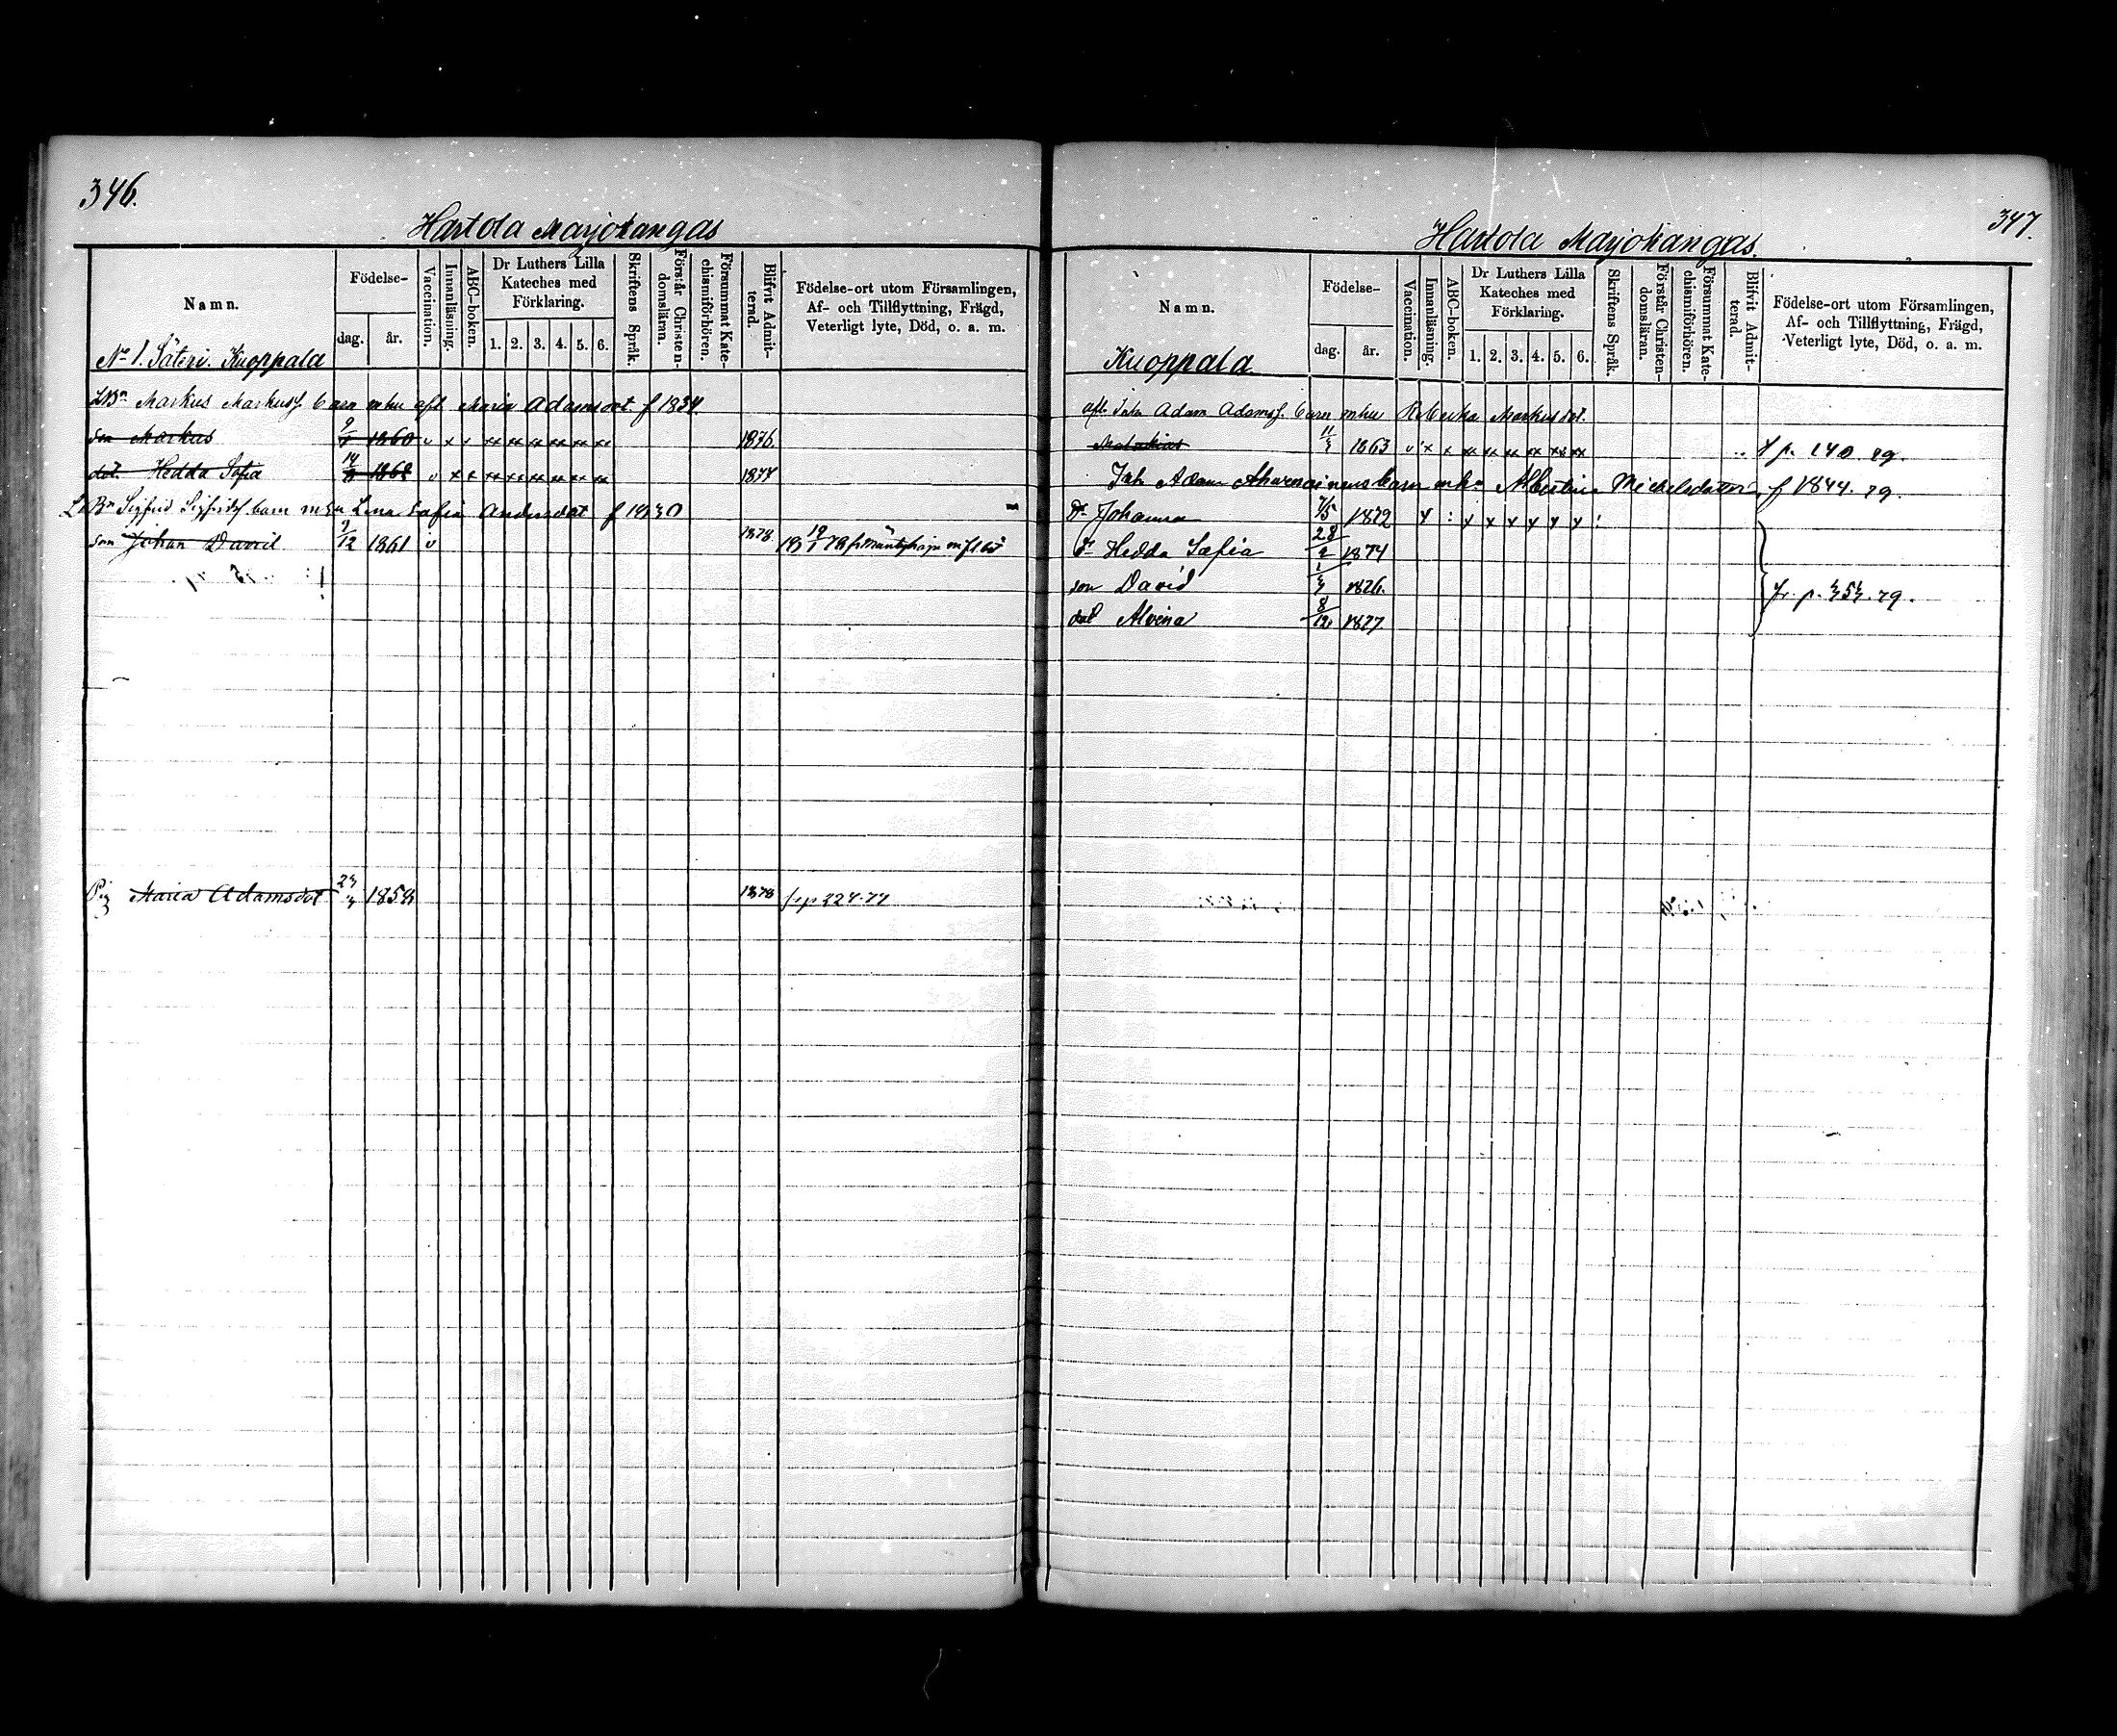 346.
Hartola Marjokangas
Namn.
Födelse-
dag.
år.
Vaccination.
Innanläsning.
ABC-boken.
Dr Luthers Lilla Kateches med Förklaring.
1. 2. 3. 4. 5. 6.
Skriftens Språk.
Förstår Christendomsläran.
Försummat Katechismiförhören.
Blifvit Admitterad.
Födelse-ort utom Församlingen,
Af- och Tillflyttning, Frägd,
Veterligt lyte, Död, o. a. m.
No 1. Säteri. Kuoppala
Markus Markusf. barn mhu afl Maria Adamsdot. f 1834
son Markus 1860 v x x x x x x x x 1876.
dot. Hedda Sofia v x x x x x x x x 1877
Sigfrid Sigfridsf barn m hu Lena Sofia Andersdot f 1830
son Johan David 9/12 1861 v 1878
Maria Adamsdot 23/3 1858 1878 frp 224.77
347.
Hartola Marjokangas.
Namn.
Födelse-
dag.
år.
Vaccination.
Innanläsning.
ABC-boken.
Dr Luthers Lilla Kateches med Förklaring.
1. 2. 3. 4. 5. 6.
Skriftens Språk.
Förstår Christendomsläran.
Försummat Katechismiförhören.
Blifvit Admitterad.
Födelse-ort utom Församlingen,
Af- och Tillflyttning, Frägd,
Veterligt lyte, Död, o. a. m.
Kuoppala
afl. Joh Adam Adamsf. barn mhu Rebecka Markusdot.
1863 v x x x x x x x x p. 140. 79.
Joh Adam Ahvenainens barn mhu Albertina Michelsdotter f 1844. 79.
Dr Johanna 7/5 1872
Dr Hedda Sofia 28/2 1874
son David 1876.
dot Alvina 8/12 1877
fr. p. 353. 79.